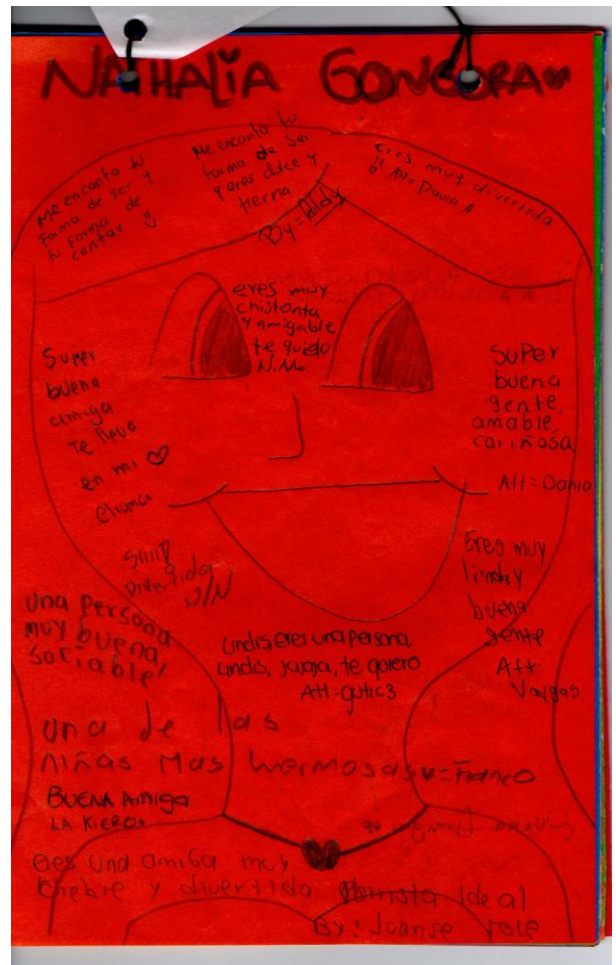 NATHALIA GONGORA
Me encanta tu
forma de ser y
tu forma de
cantar y
Me encanta tu
forma de ser
y eres dulce y
tierna
By = Aldy
eres muy divertida
Att = Paula A
eres muy
chistonta
y amigable
te quielo
N.M.
Super
buena
amiga
te llevo
en mi ♡
SuPer
buena
gente,
amable,
cariñosa
Att = Dania
Siiii
Divertida
N/N
Eres muy
linda y
buena
gente
Att
Vargas.
una Persona
muy buena,
sociable!
Lindis, eres una persona,
lindis, juaja, te quiero
Att = gutic3
una de las
niñas Mas hermosas = Franco
BUENA AmigA
LA KIERO.
eres una amiga muy
chebre y divertida Ideal
By: Juanse